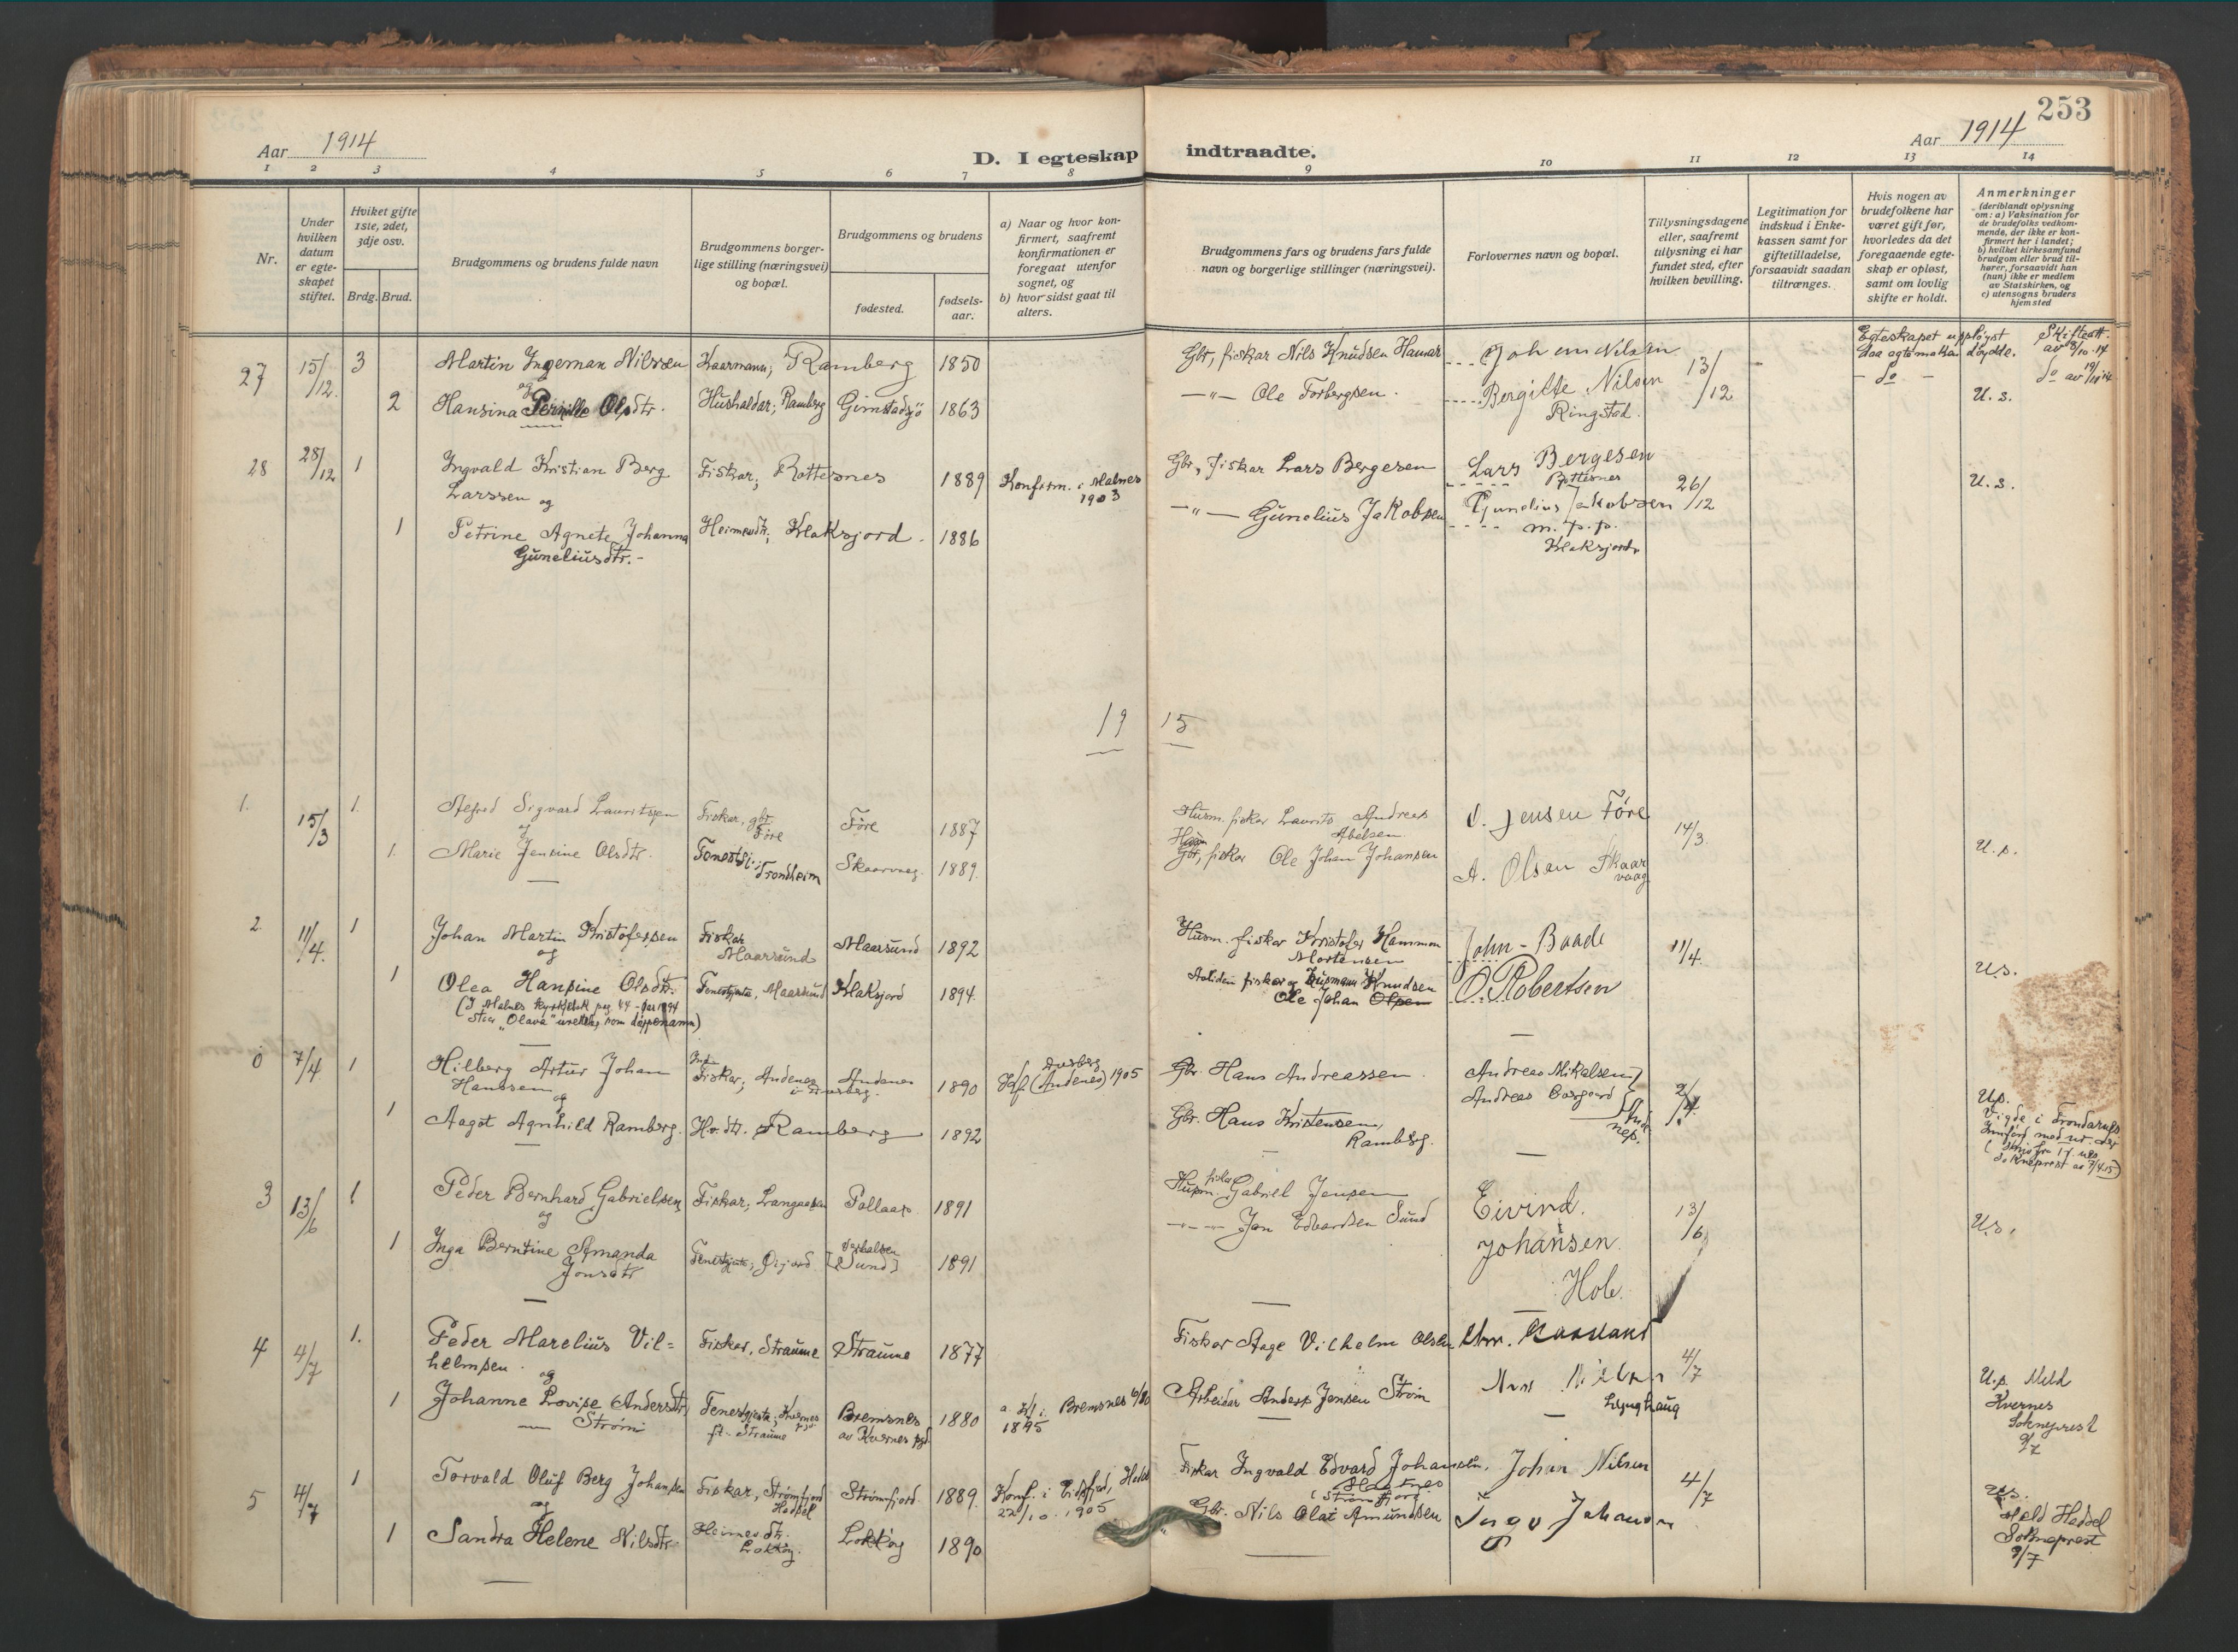 253
Aar 1914
D. I egteskap indtraadte.
Aar 1914
1 2 3 4 5 6 7 8 9 10 11 12 13 14
Nr.
Under hvilken datum er egte- skapet stiftet.
Hviket gifte 1ste, 2det, 3dje osv.
Brdg. Brud.
Brudgommens og brudens fulde navn
Brudgommens borger- lige stilling (næringsvei) og bopæl.
Brudgommens og brudens
fødested.
fødsels- aar.
a) Naar og hvor kon- firmert, saafremt konfirmationen er foregaat utenfor sognet, og
b) hvor sidst gaat til alters.
Brudgommens fars og brudens fars fulde navn og borgerlige stillinger (næringsvei).
Forlovernes navn og bopæl.
Tillysningsdagene eller, saafremt tillysning ei har fundet sted, efter hvilken bevilling.
Legitimation for indskud i Enke- kassen samt for giftetilladelse, forsaavidt saadan tiltrænges.
Hvis nogen av brudefolkene har været gift før, hvorledes da det foregaaende egte- skap er opløst, samt om lovlig skifte er holdt.
Anmerkninger
(deriblandt oplysning om: a) Vaksination for de brudefolks vedkom- mende, der ikke er kon- firmert her i landet; b) hvilket kirkesamfund brudgom eller brud til- hører, forsaavidt han (hun) ikke er medlem av Statskirken, og c) utensogns bruders hjemsted
27 15/12. 3 Martin Ingeman Nilssen Kaarmann; Ramberg 1850 Gbr, fiskar Nils Knudsen Hamar Johan Nilsen 13/12 Egteskapet uppløyst daa egtemaken døydde. Skifteatt. av 8/10 14
og
2 Hansina Pernille Olsdtr. Hushaldar; Ramberg Gimstadsjø 1863 —"— Ole Torbergsen. Bergitte Nilsen Ringstad. — do — do av 19/11 14
U. s.
28 28/12 1 Ingvald Kristian Berg Larssen og Fiskar; Rottesnes 1889 Konfirm. i Malnes 1903 Gbr, fiskar Lars Bergesen Lars Bergesen Rottesnes 26/12 U. s.
1 Petrine Agnete Johanna Guneliusdtr. Heimedtr; Klaksjord 1886 —"— Gunelius Jakobsen Gunelius Jakobsen m. p. p. Klaksjord
1915
1. 15/3 1. Alfred Sigvard Lauritssen Fiskar, gbr. Føre Føre 1887 Husm. fiskar Laurits Andreas Abelsen O. Jensen Føre 14/3.
og
1. Marie Jensine Olsdtr. Trondheim Skaarvaag. 1889. Gbr, fiskar Ole Johan Johansen A. Olsen Skaarvaag U. s.
2. 11/4. 1 Johan Martin Kristofersen Fiskar Maarsund Maarsund 1892 Husm. fiskar Kristofer Hammon Mortensen John Baade 11/4. U.s.
og
1 Olea Hansine Olsdtr. Tenestjenta, Maarsund Klaksjord 1894. Avliden fiskar og husmann Knudsen Ole Johan Olsen O. Robertsen
(I Malnes kyrkjebok pag 44 - Aar 1894 staar „Olava" urettleg som døypenamn)
0 7/4 1 Hilberg Artur Johan Hanssen Fiskar; Andenes i Dverberg. Andenes 1890 Kf (Andenes) Dverberg 1905 Gbr. Hans Andreassen Andreas Mikalsen 2/4.
og
1 Aagot Agnhild Ramberg. H. dtr. Ramberg 1892 Gbr. Hans Kristensen, Ramberg. Andreas Borgaard Andenes. U.s. Vigde i Trondarnes
3 13/6 1. Peder Bernhard Gabrielsen Fiskar; Langaasen Sallaas. 1891 Husm. fiskar Gabriel Jensen Eivind. 13/6
og
1 Inga Berntine Amanda Jonsdtr Tenestjenta; Øijord [Sund] 1891 —"— Jon Edvardsen Sund Johansen Hole. U.s.
4 4/7 1. Peder Marelius Vilhelmsen. Fiskar, Straume Straume 1877 Fiskar Aage Vilhelm Olsen 4/7
og
1 Johanne Lovise Andersdtr Strøm Tenestjenta; Kvernes pgd ft. Straume Bremsnes av Kvernes pgd 1880 a. Kf i Bremsnes 1895 Arbeidar Anders Jensen Strøm Lynghaug U.s. Meld Kvernes Sokneprest 9/7
5 4/7 1 Torvald Oluf Berg Johansen Fiskar, Strømfjord Hadsel Strømfjord 1889. Konf. i Eidsfjord, Hadsel 22/10. 1905 Fiskar Ingvald Edvard Johansen, Strømfjord Johan Nilsen 4/7
og
1 Sandra Helene Nilsdtr. Heimedtr. Lokkøy. Lokkøy 1890 Gbr. Nils Olai Amundsen Johansen U.s. Meld Hadsel Sokneprest 9/7